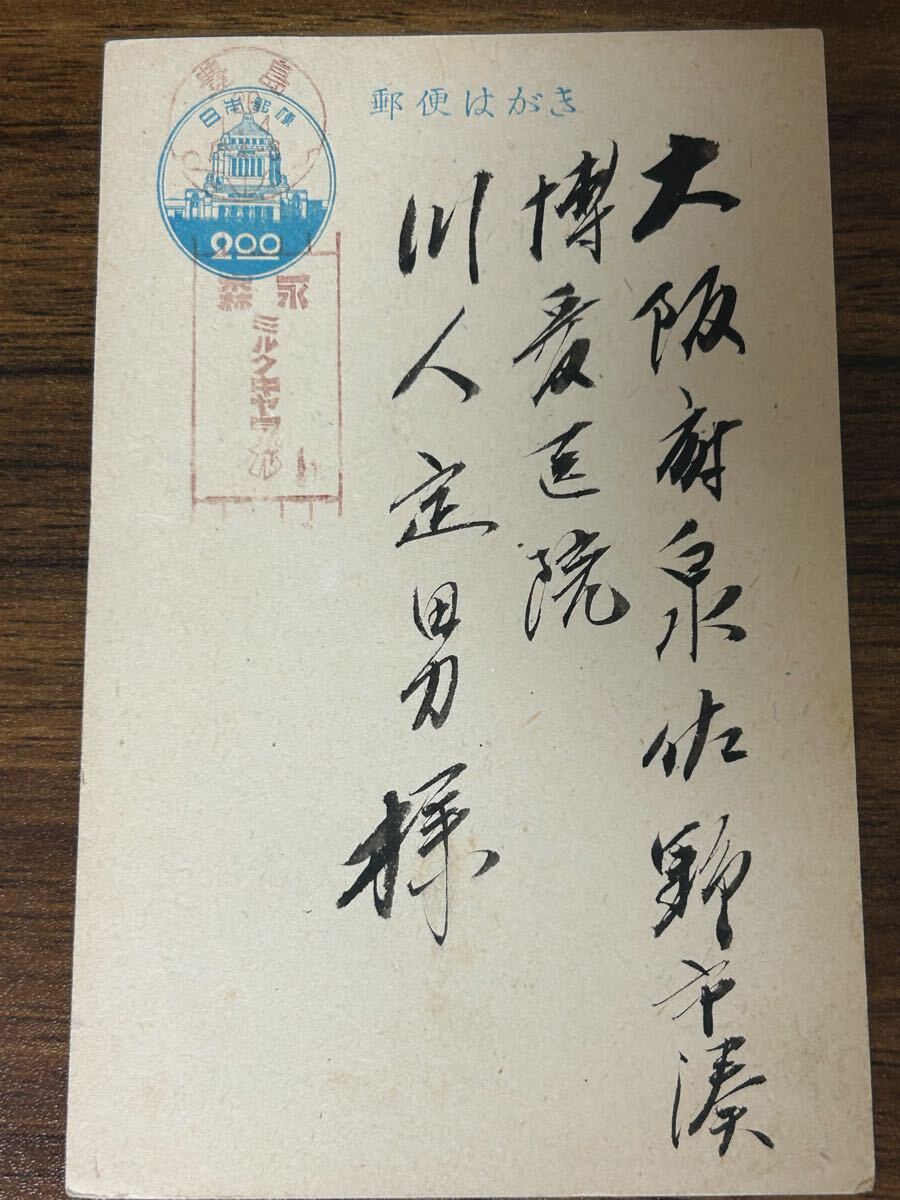 郵便はがき
日本郵便
2.00
島
森永
ミルクキヤラメル
大阪府泉佐野市湊
博愛医院
川人定男様